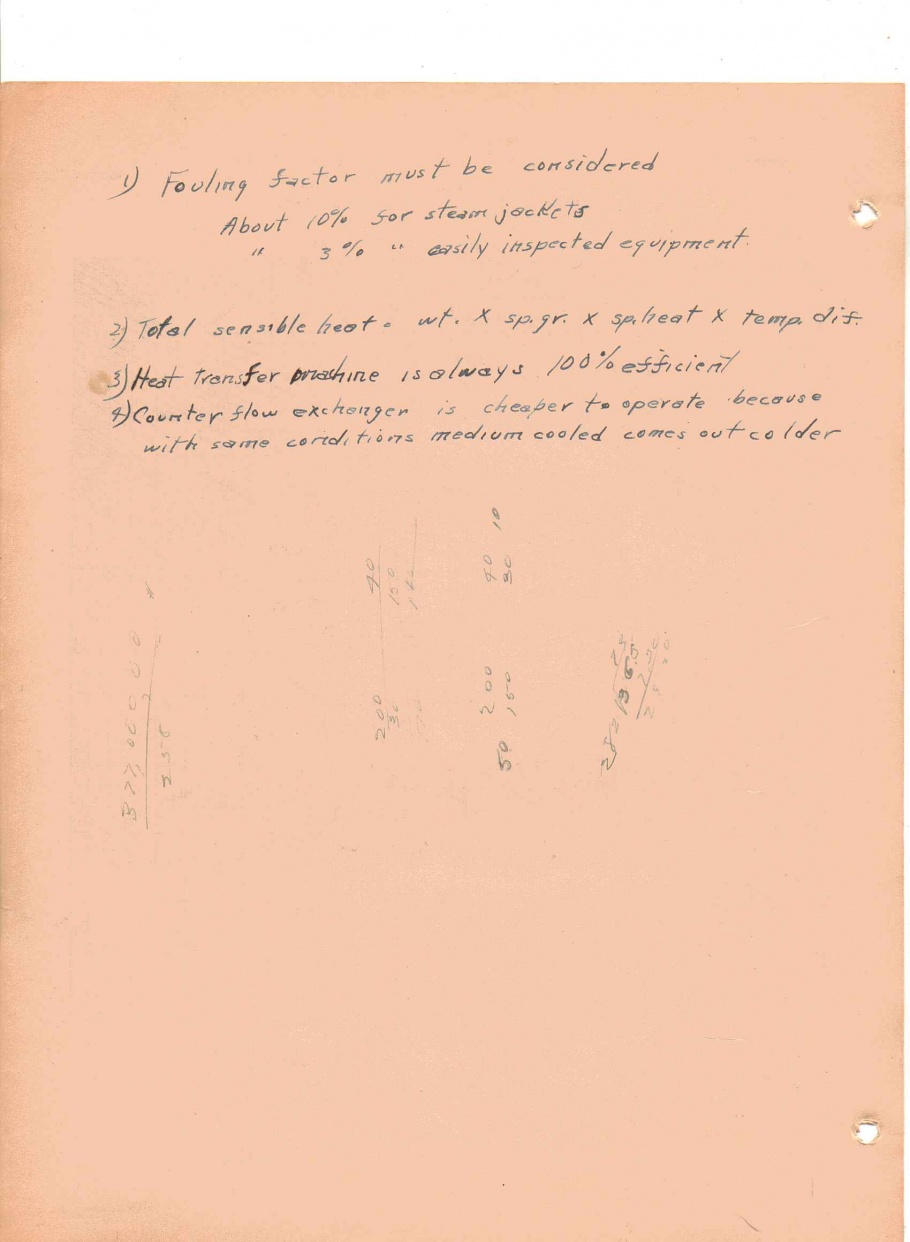 1) Fouling factor must be considered
About 10% for steam jackets
" 3% " easily inspected equipment.
2) Total sensible heat = wt. X sp.gr. x sp.heat X temp. dif.
3) Heat transfer machine is always 100% efficient
4) Counter flow exchanger is cheaper to operate because
with same conditions medium cooled comes out colder
200 40
30 150
200 40 10
50 150 30